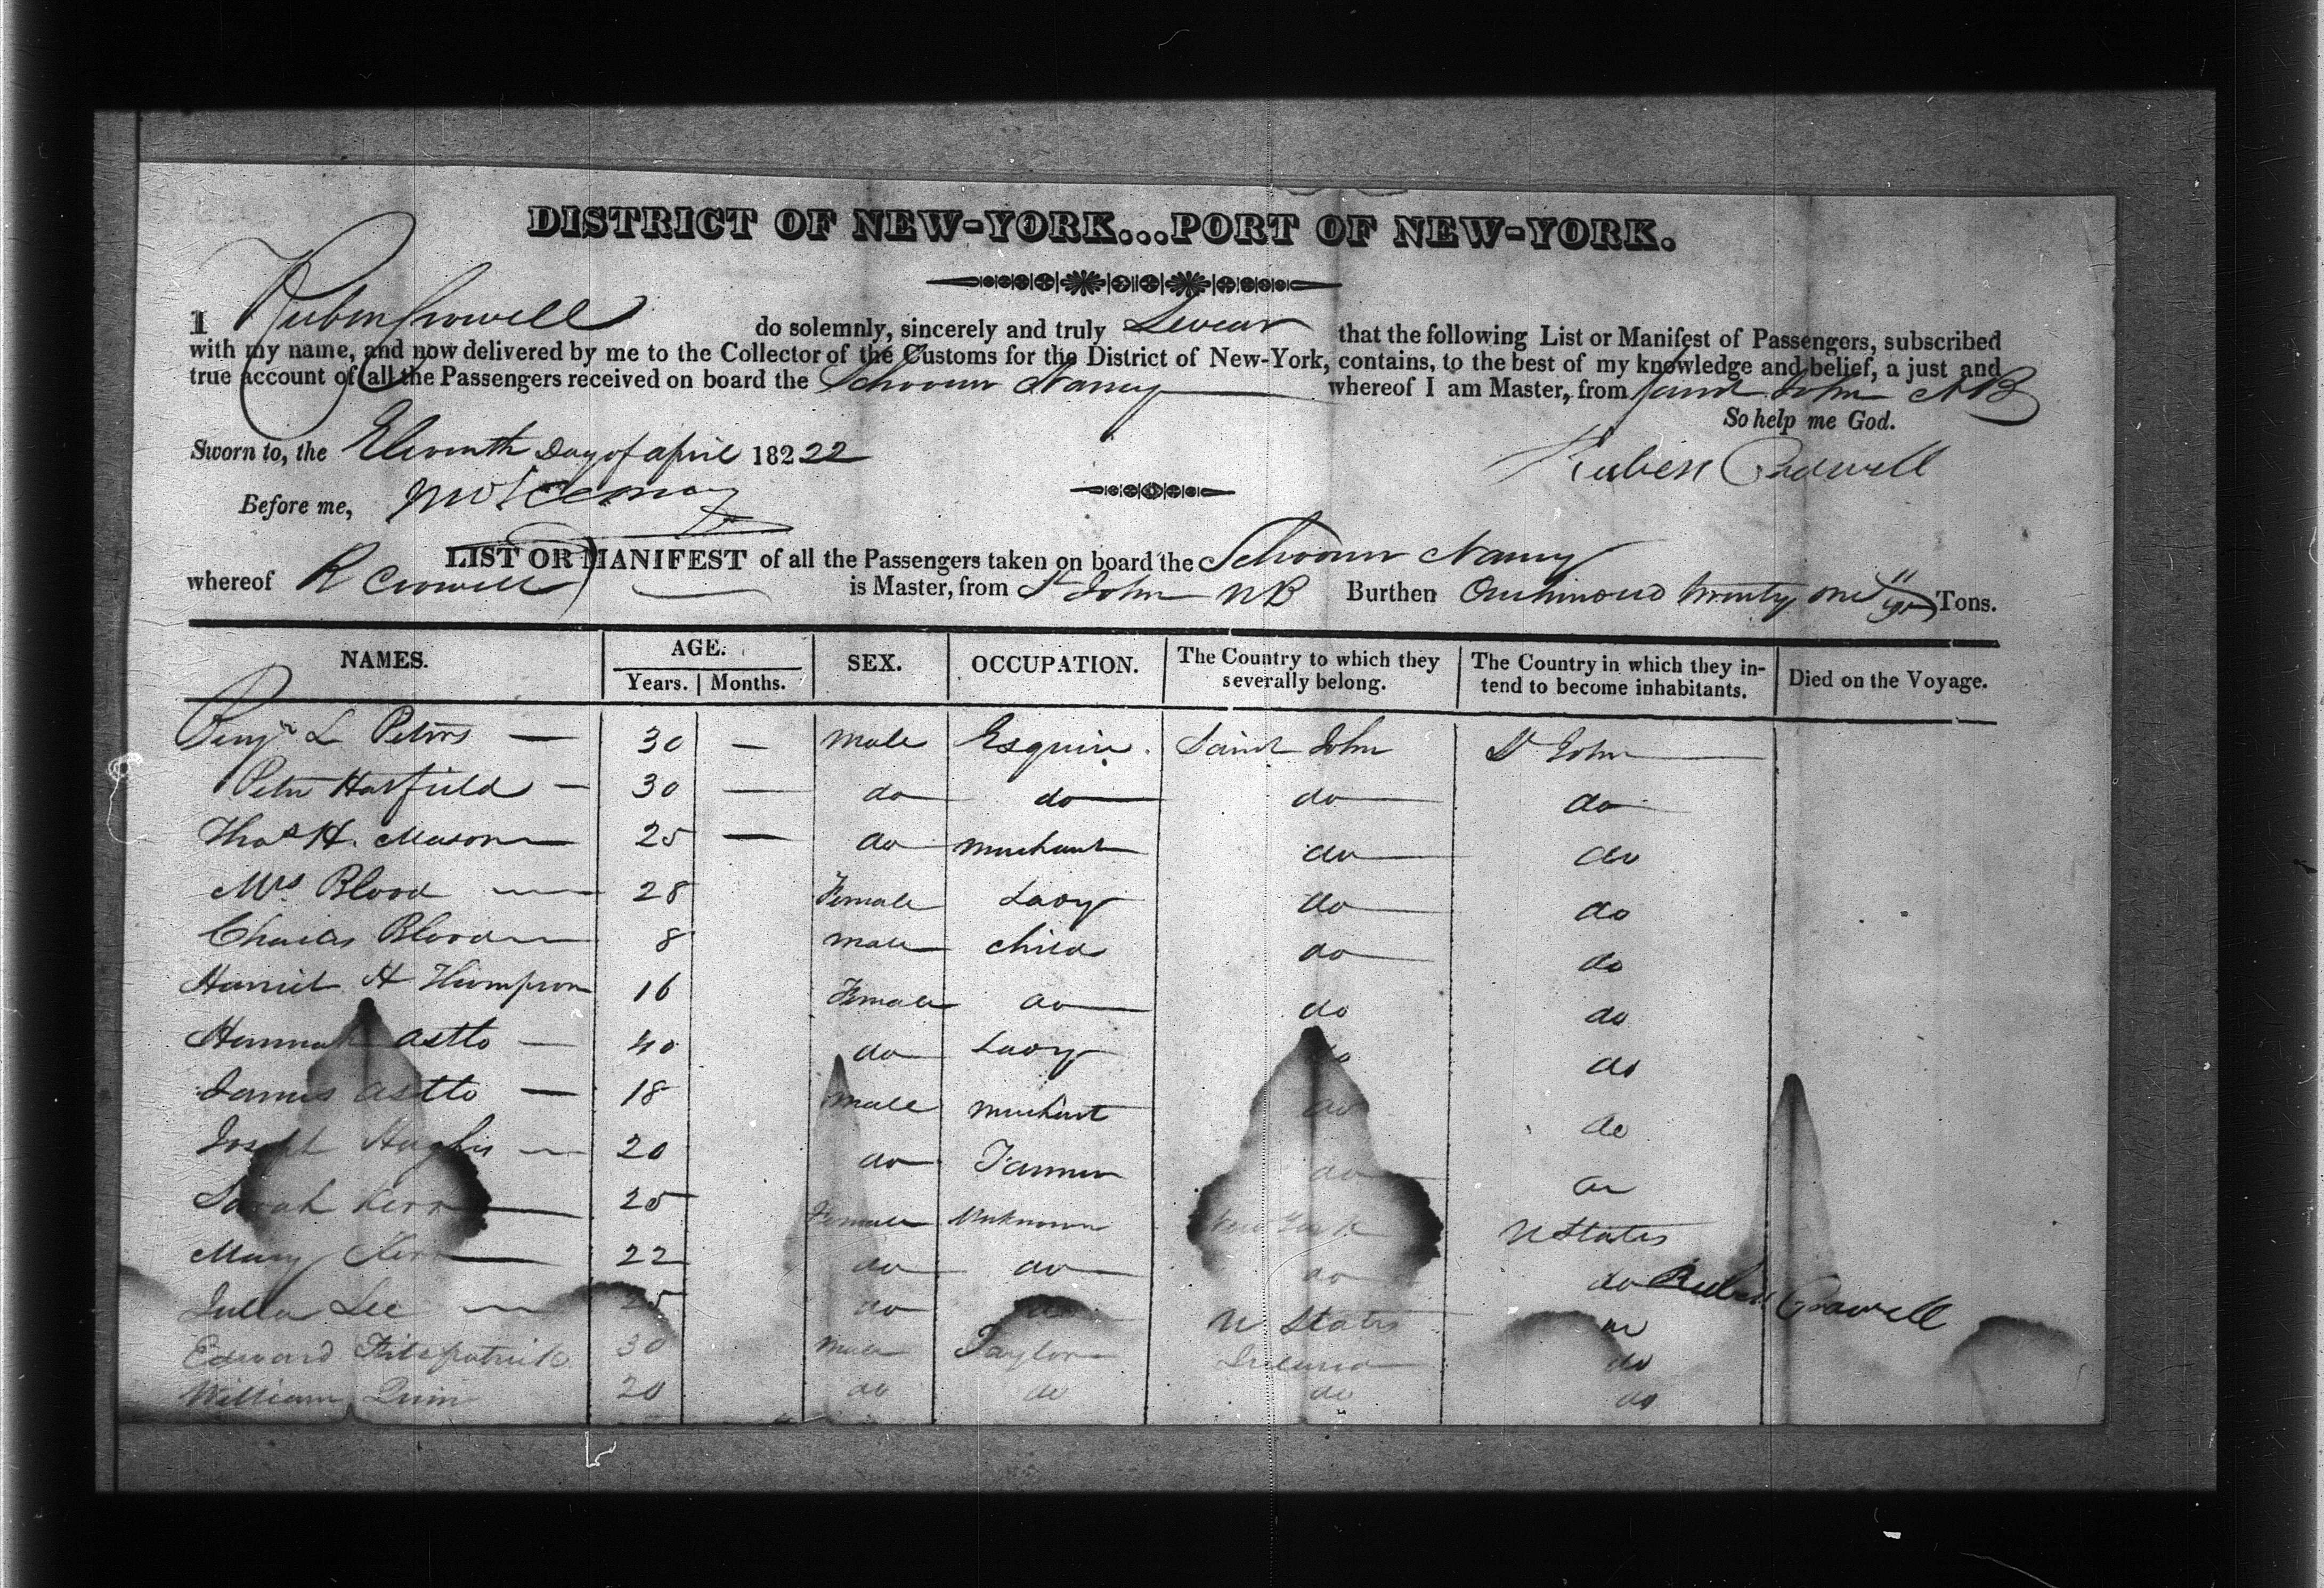 DISTRICT OF NEW-YORK...PORT OF NEW-YORK.
I Ruben Crowell do solemnly, sincerely and truly Swear that the following List or Manifest of Passengers, subscribed
with my name, and now delivered by me to the Collector of the Customs for the District of New-York, contains, to the best of my knowledge and belief, a just and
true account of all the Passengers received on board the Schooner Nancy whereof I am Master, from Saint John NB
So help me God.
Sworn to, the Eleventh Day of april 182 22
Ruben Crowell
Before me,
LIST OR MANIFEST of all the Passengers taken on board the Schooner Nancy
whereof R Crowell is Master, from St John NB Burthen One hundred twenty one Tons.
NAMES. AGE. SEX. OCCUPATION. The Country to which they severally belong. The Country in which they in-tend to become inhabitants. Died on the Voyage.
Years. Months.
Benjn L Peters — 30 — male Esquire. Saint John St John
Peter Hatfield — 30 — do do do do
Thos H. Mason 25 — do merchant do do
Mrs Blood 28 Female Lady do do
Charles Blood 8 male child do do
Harriet H Thompson 16 Female do do do
Hannah astto — 40 do Lady do do
James astto — 18 male merchant do do
Joseph Hughes — 20 do Farmer do do
Sarah Kerr 25 Female Unknown New York U States
Mary Kerr 22 do do do do Ruben Crowell
Julia Lee 25 do do U States do
Edward Fitzpatrick 30 male Taylor Ireland do
William Quin 20 do do do do